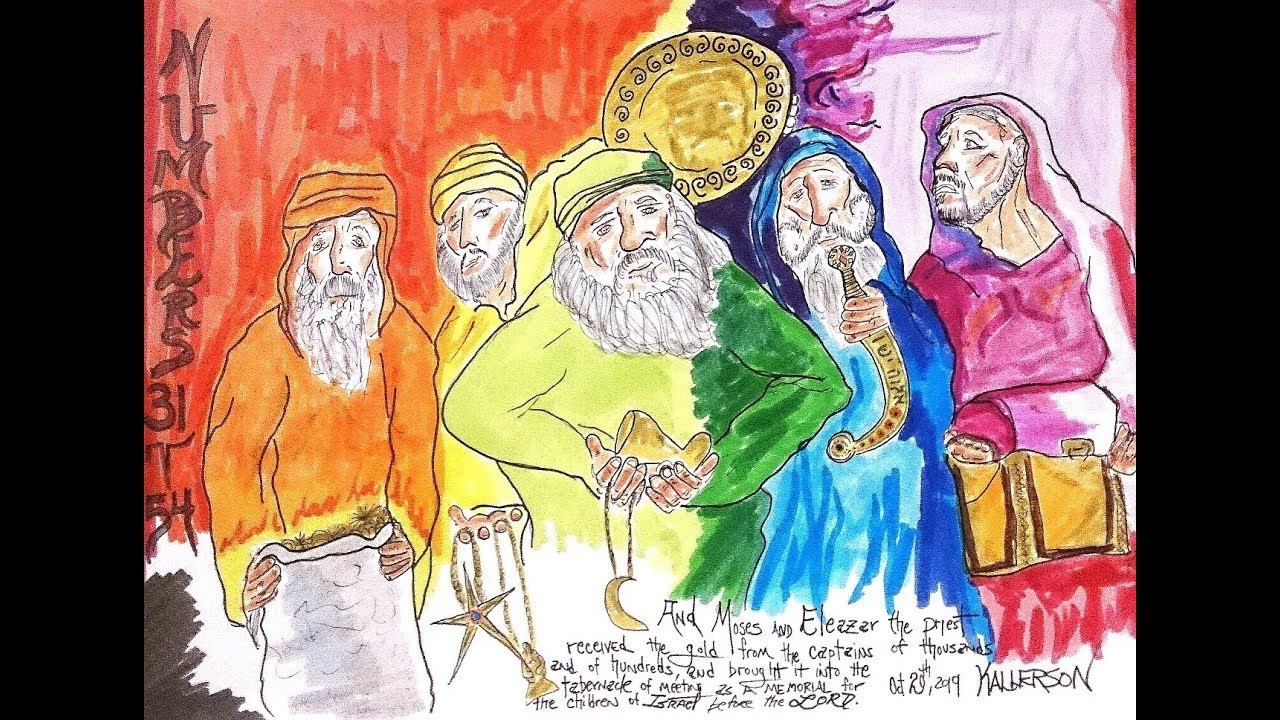 NUMBERS 31 T 54
And Moses and Eleazar the priest
received the gold from the captains of thousands
and of hundreds, and brought it into the
tabernacle of meeting as a memorial for
the children of Israel before the LORD.
Oct 20th, 2019 KALLERSON